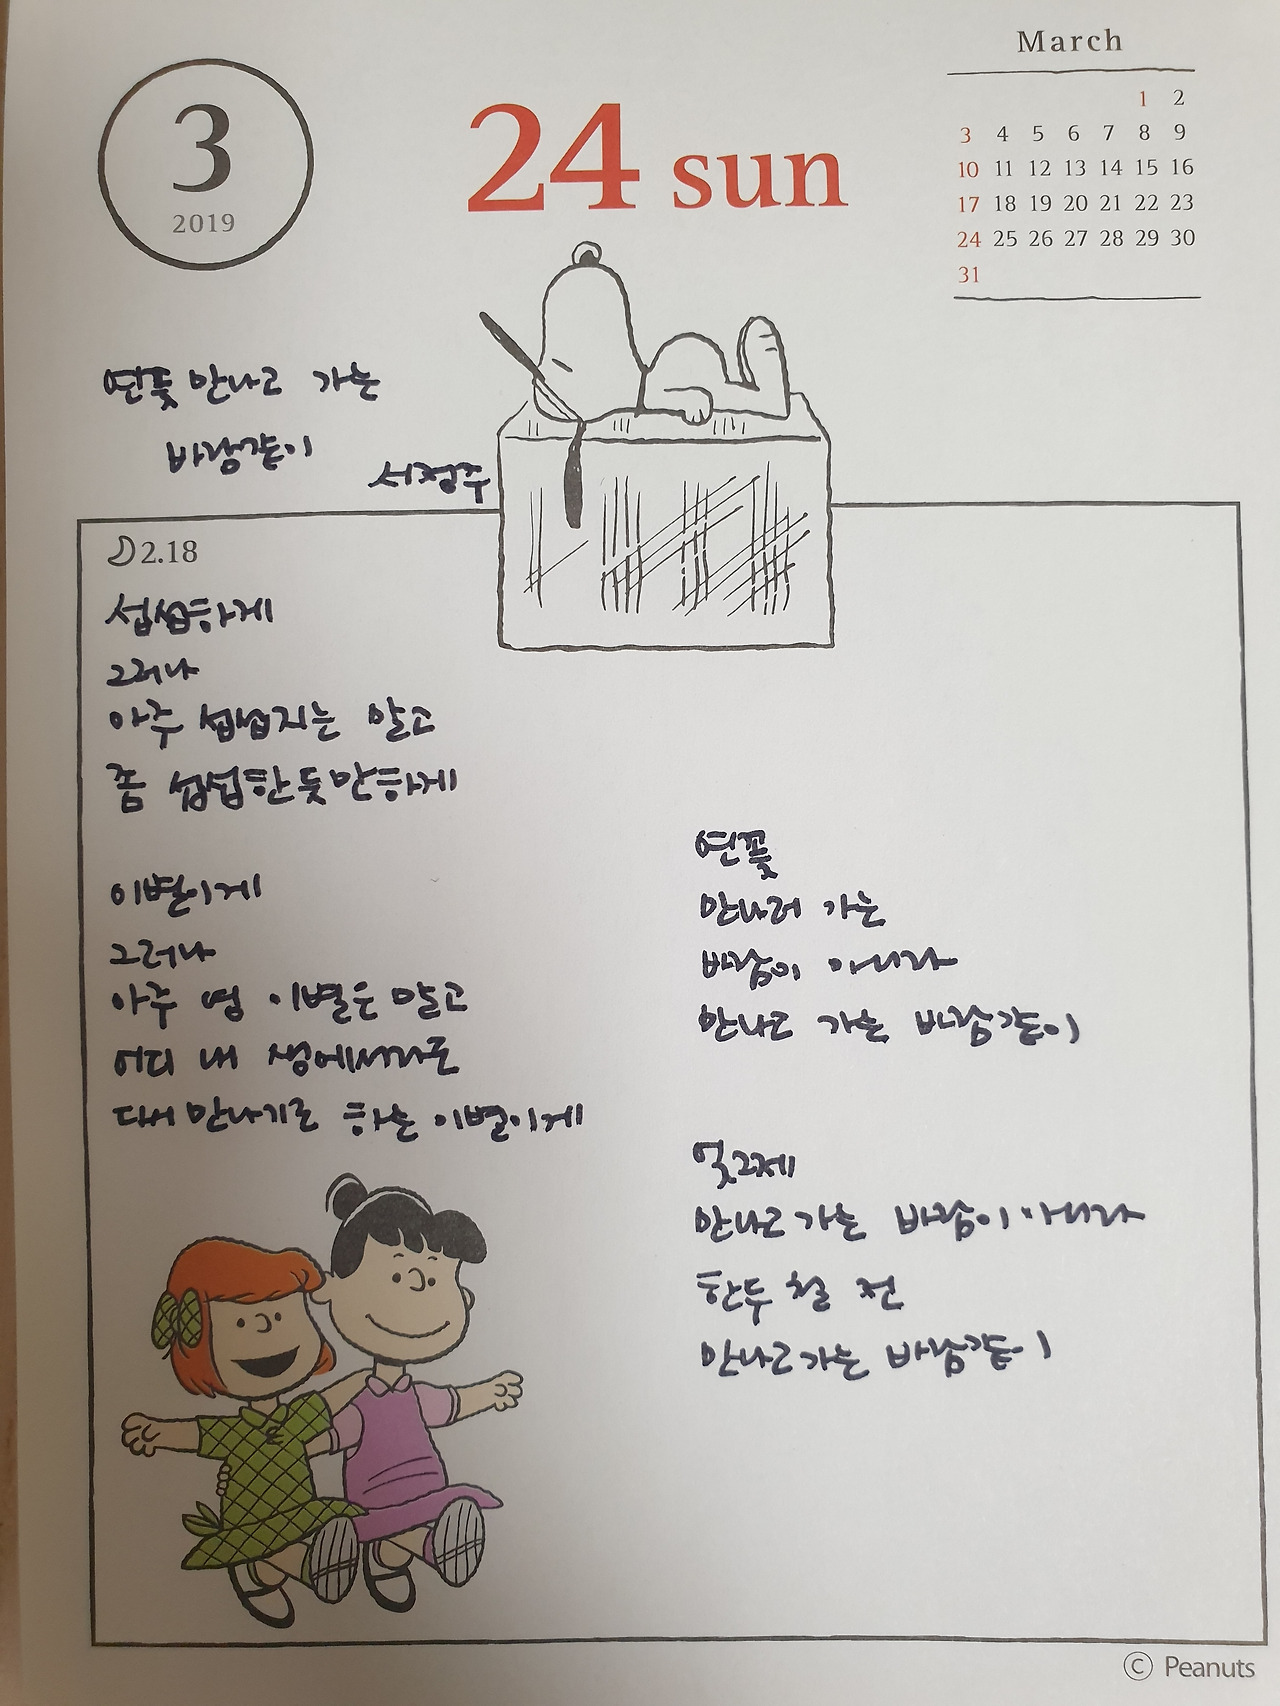 3
2019
24 sun
March
1 2
3 4 5 6 7 8 9
10 11 12 13 14 15 16
17 18 19 20 21 22 23
24 25 26 27 28 29 30
31
연꽃 만나고 가는
바람같이
서정주
2.18
섭섭하게
그러나
아주 섭섭지는 말고
좀 섭섭한 듯만 하게
이별이게
그러나
아주 영 이별은 말고
어디 내 생에서라도
다시 만나기로 하는 이별이게
연꽃
만나러 가는
바람이 아니라
만나고 가는 바람같이
엊그제
만나고 가는 바람이 아니라
한두 철 전
만나고 가는 바람같이
© Peanuts